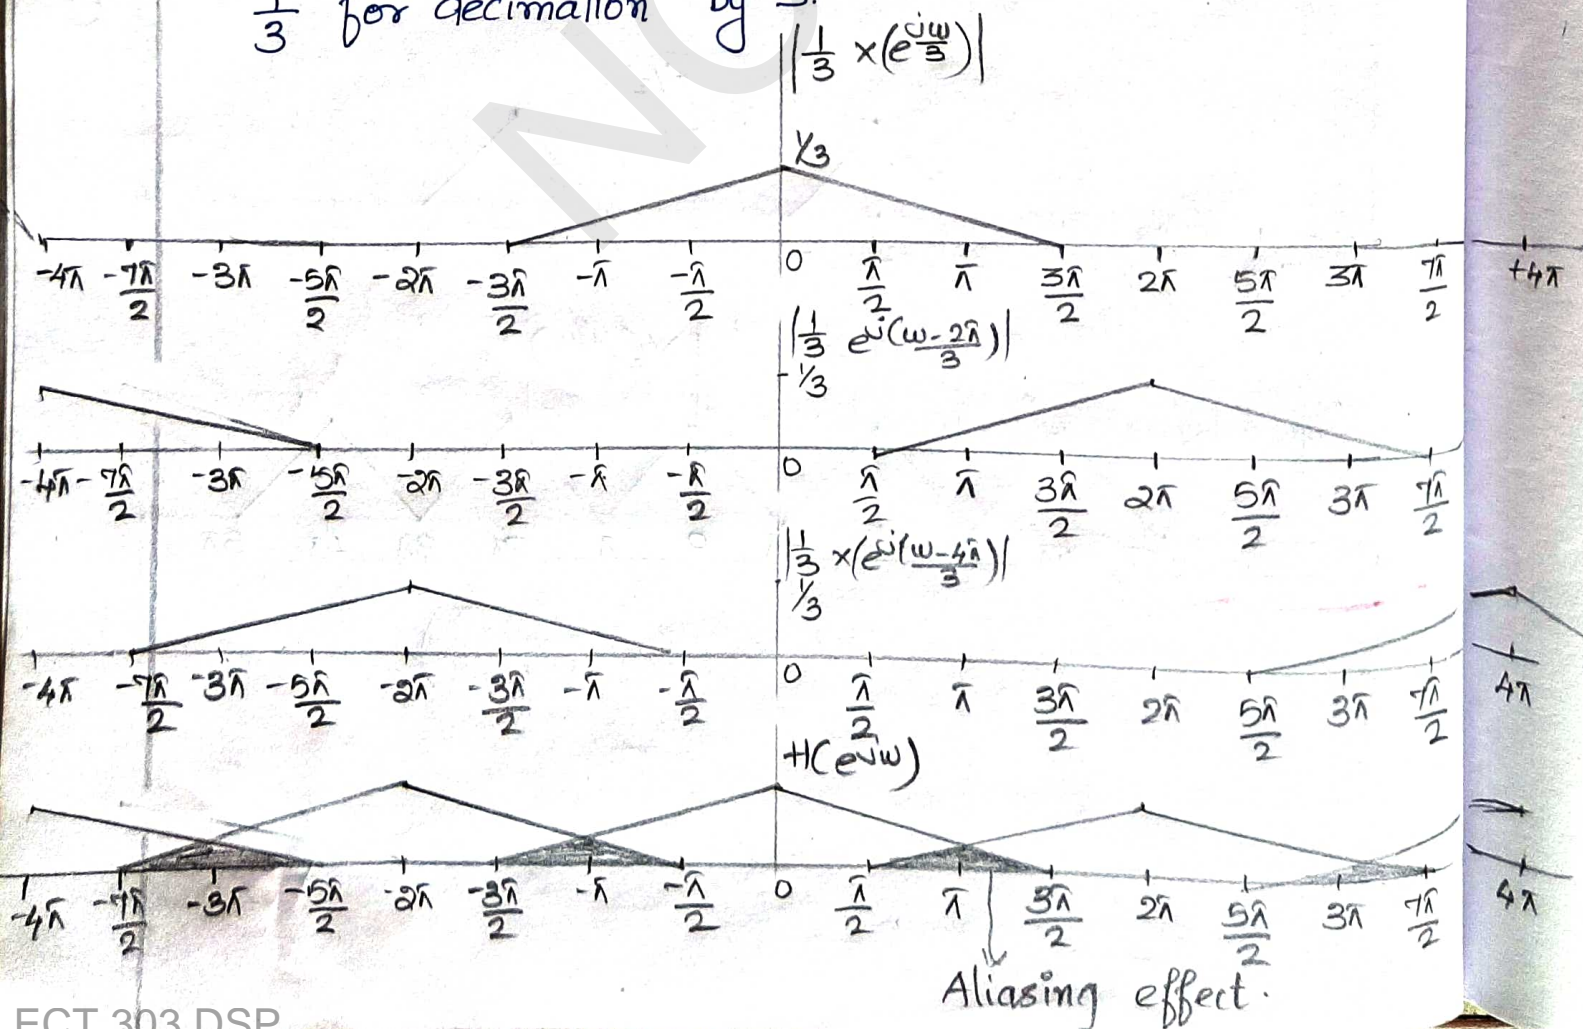 1/3 for decimation by 3.
|1/3 X(e^jω/3)|
1/3
-4π -7π/2 -3π -5π/2 -2π -3π/2 -π -π/2 0 π/2 π 3π/2 2π 5π/2 3π 7π/2 +4π
|1/3 e^j(ω-2π/3)|
1/3
-4π -7π/2 -3π -5π/2 -2π -3π/2 -π -π/2 0 π/2 π 3π/2 2π 5π/2 3π 7π/2
|1/3 X(e^j(ω-4π/3)|
1/3
-4π -7π/2 -3π -5π/2 -2π -3π/2 -π -π/2 0 π/2 π 3π/2 2π 5π/2 3π 7π/2 4π
H(e^jω)
-4π -7π/2 -3π -5π/2 -2π -3π/2 -π -π/2 0 π/2 π 3π/2 2π 5π/2 3π 7π/2 4π
Aliasing effect.
ECT 303 DSP